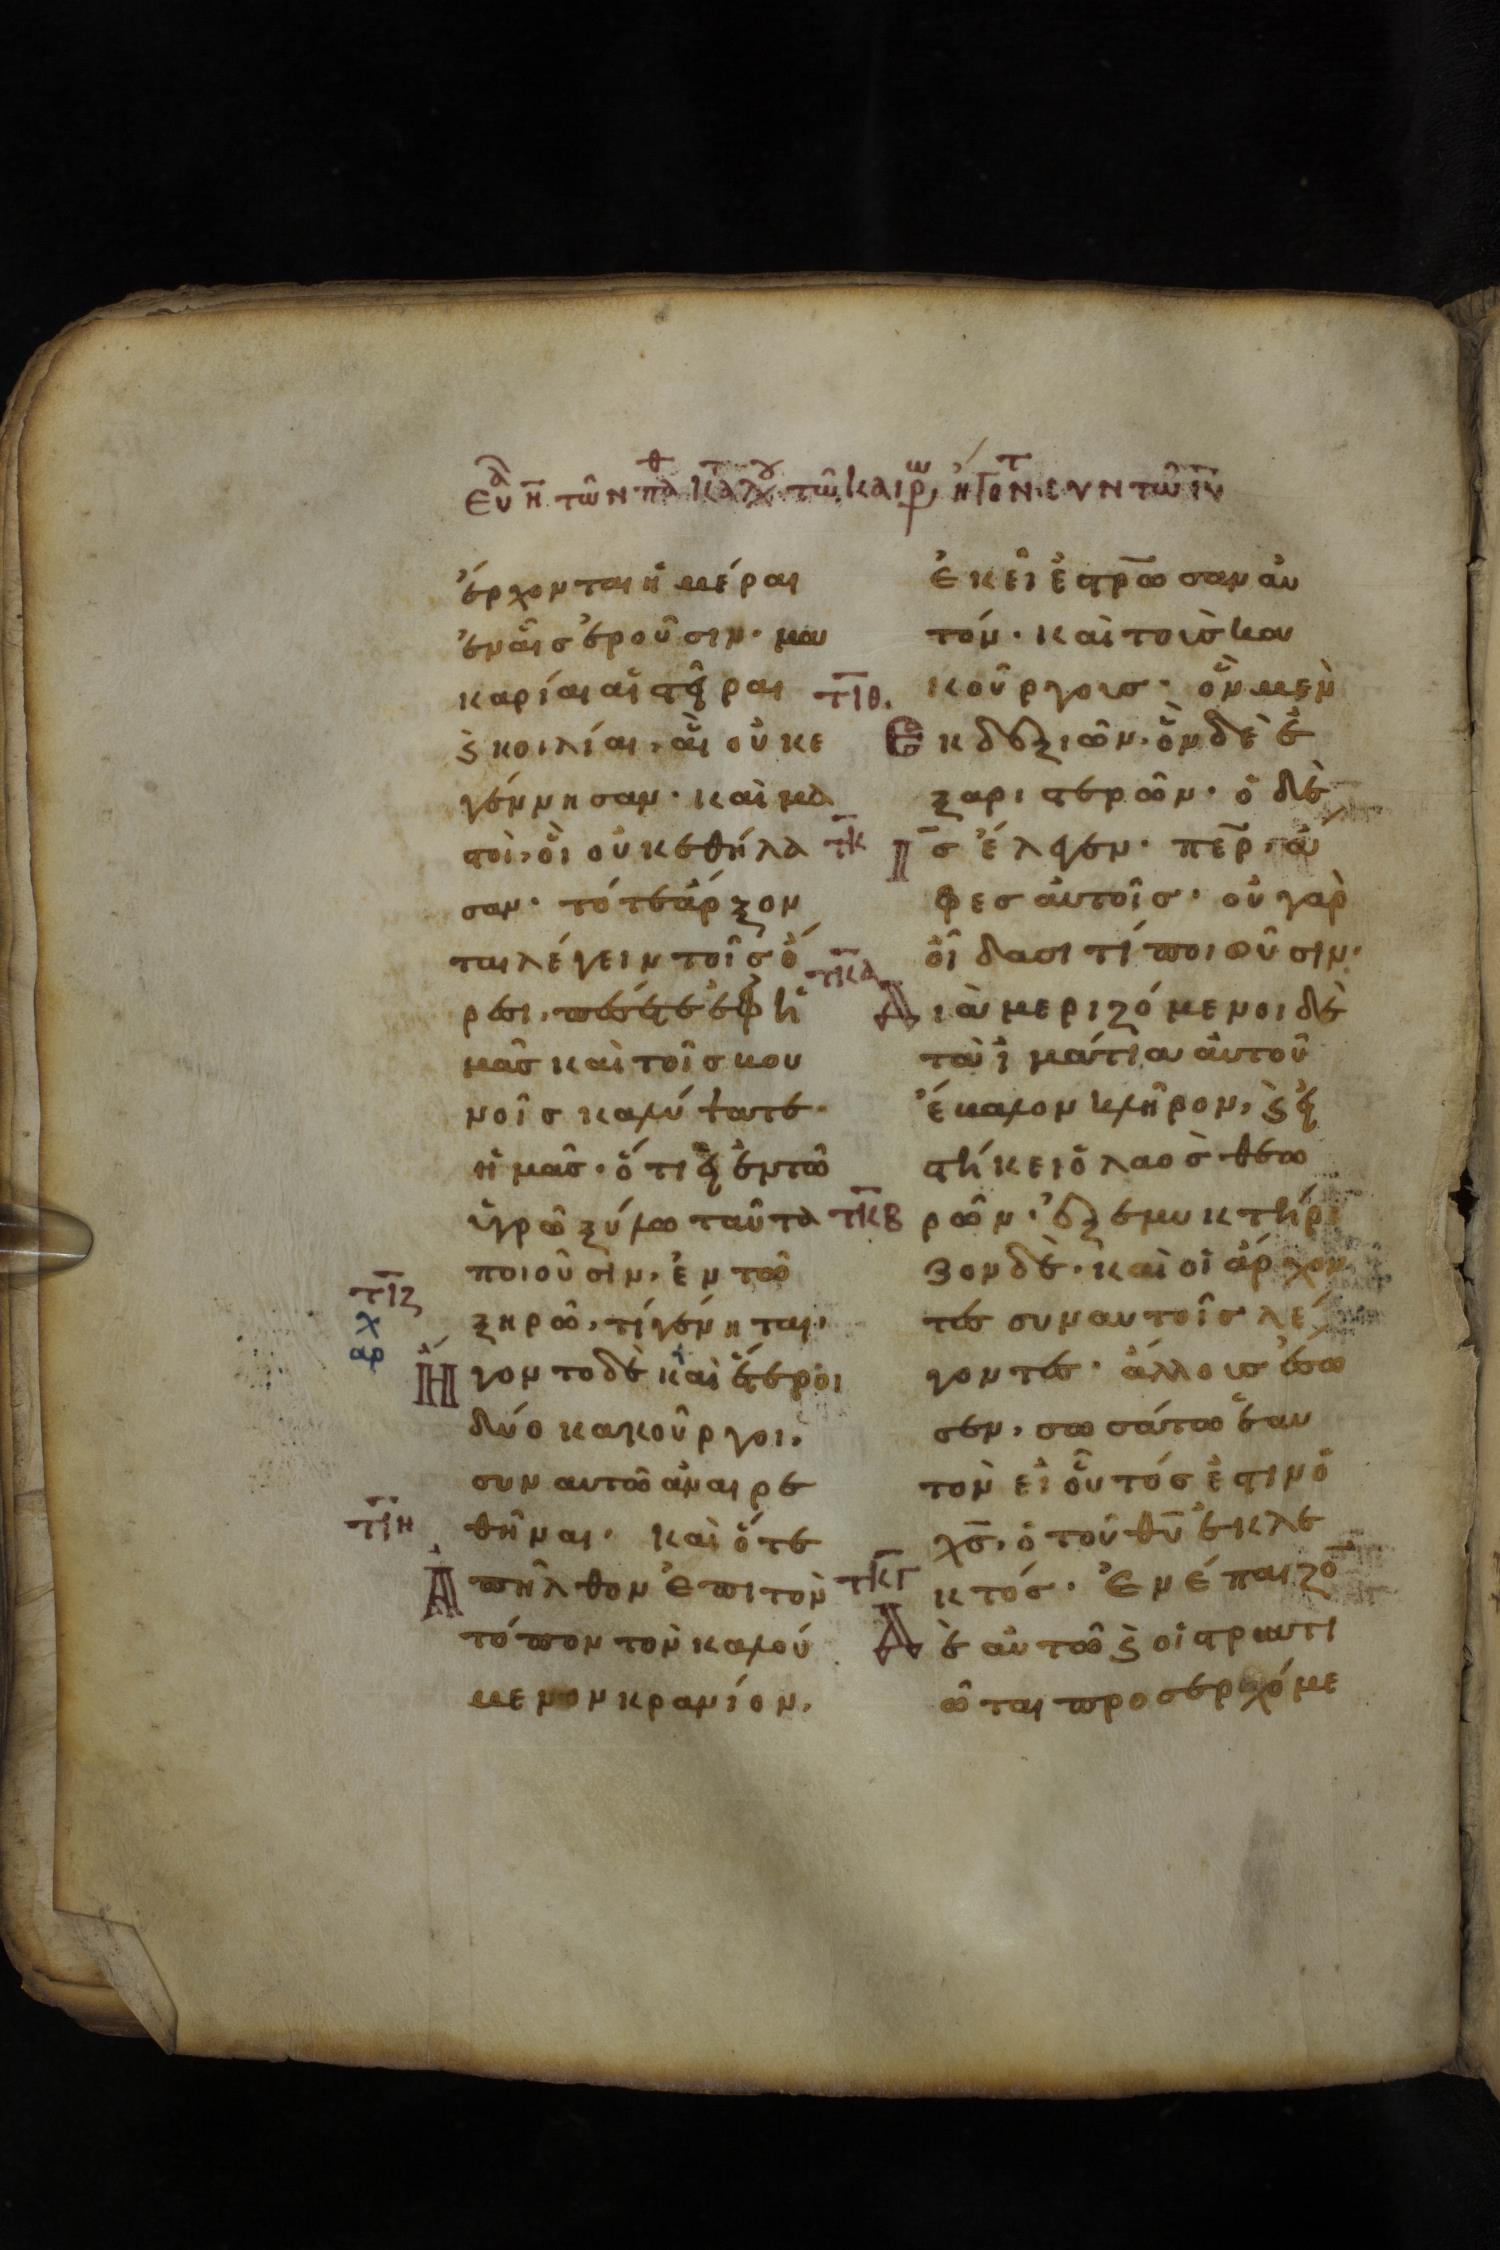 ἔρχονται ἡμέραι
ἐν αἷς ἐροῦσιν· μα
καρίαι αἱ στεῖραι
ϗ κοιλίαι, αἳ οὐκ ε
γέννησαν· καὶ μα
στοὶ, οἳ οὐκ εθήλα
σαν· τότε ἄρξον
ται λέγειν τοῖς ὄ
ρεσι, πέσετε ἐφ ἡ
μᾶς καὶ τοῖς βου
νοῖς καλύψατε·
ἡμᾶς· ὅτι εἰ ἐν τῶ
ὑγρῶ ξύλω ταῦτα
ποιοῦσιν, ἐν τῶ
ξηρῶ, τί γένηται,
τιζ
χ
αρ
Ἤγοντο δὲ καὶ ἕτεροι
δύο κακοῦργοι,
συν αυτῶ ἀναιρε
θῆναι· καὶ ὅτε
τιη
Ἀπῆλθον ἐπι τὸν
τόπον τὸν καλού
μενον κρανίον,
ἐκεῖ ἐστρωσαν αὐ
τόν· καὶ τοὺς κα
κούργους· ὃν μὲν
τιθ
Εκ δεξιῶν· ὃν δὲ ἐ
ξαριστερῶν· ὁ δὲ
τκ
Ις ἔλεγεν· περ, ἄ
φες αὐτοῖς· οὐ γὰρ
οἴδασι τί ποιοῦσιν·
τκα
Διαμεριζόμενοι δὲ
τὰ ἱμάτια αὐτοῦ
ἔβαλον κλῆρον, ϗ εἱ
στήκει ὁ λαὸς θεω
τκβ
ρῶν· ἐξεμυκτήρι
ζον δὲ· καὶ οἱ ἄρχον
τες συν αυτοῖς λέ
γοντες· ἄλλους ἔσω
σεν, σωσάτω ἑαυ
τὸν εἰ οὗτός ἐστιν ὁ
χς, ὁ τοῦ θυ ἐκλε
κτός· Ἐνέπαιζο
τκγ
Δὲ αὐτῶ ϗ οἱ στρατι
ῶται προσερχόμε